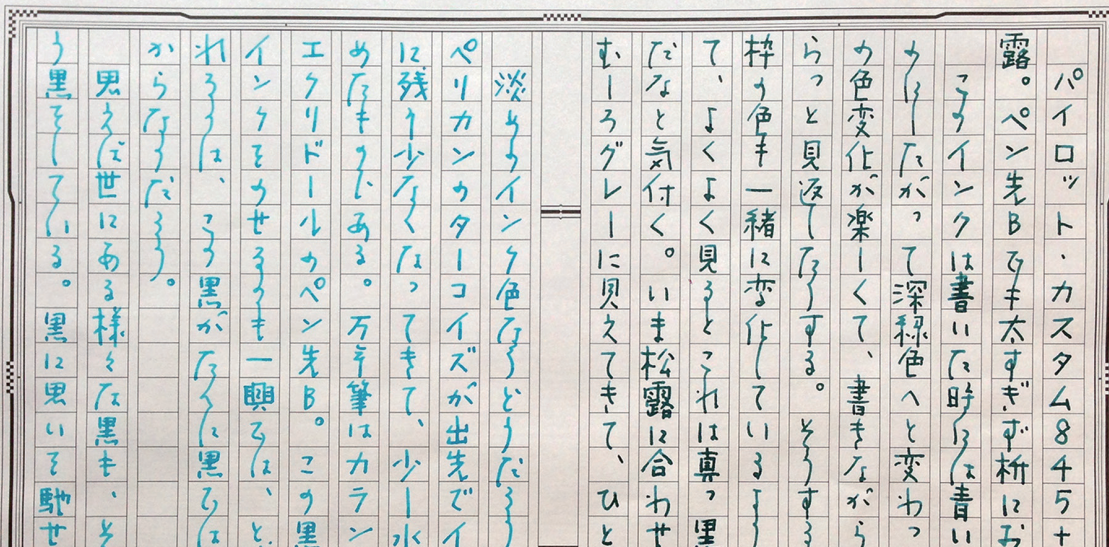 パイロット・カスタム845+
露。ペン先Bでも太すぎず枡にお
このインクは書いた時には青い
のにしたがって深緑色へと変わっ
の色変化が楽しくて、書きながら
らっと見返したりする。そうする
枠の色も一緒に変化しているよう
て、よくよく見るとこれは真っ黒
だなと気付く。いま松露に合わせ
むしろグレーに見えてきて、ひと
淡めのインク色ならどうだろう
ペリカンのターコイズが出先でイ
に残り少なくなってきて、少し水
めたものである。万年筆はカラン
エクリドールのペン先B。この黒
インクをのせるのも一興では、と
れるのは、この黒がたんに黒では
からなのだろう。
思えば世にある様々な黒も、そ
う黒をしている。黒に思いを馳せ